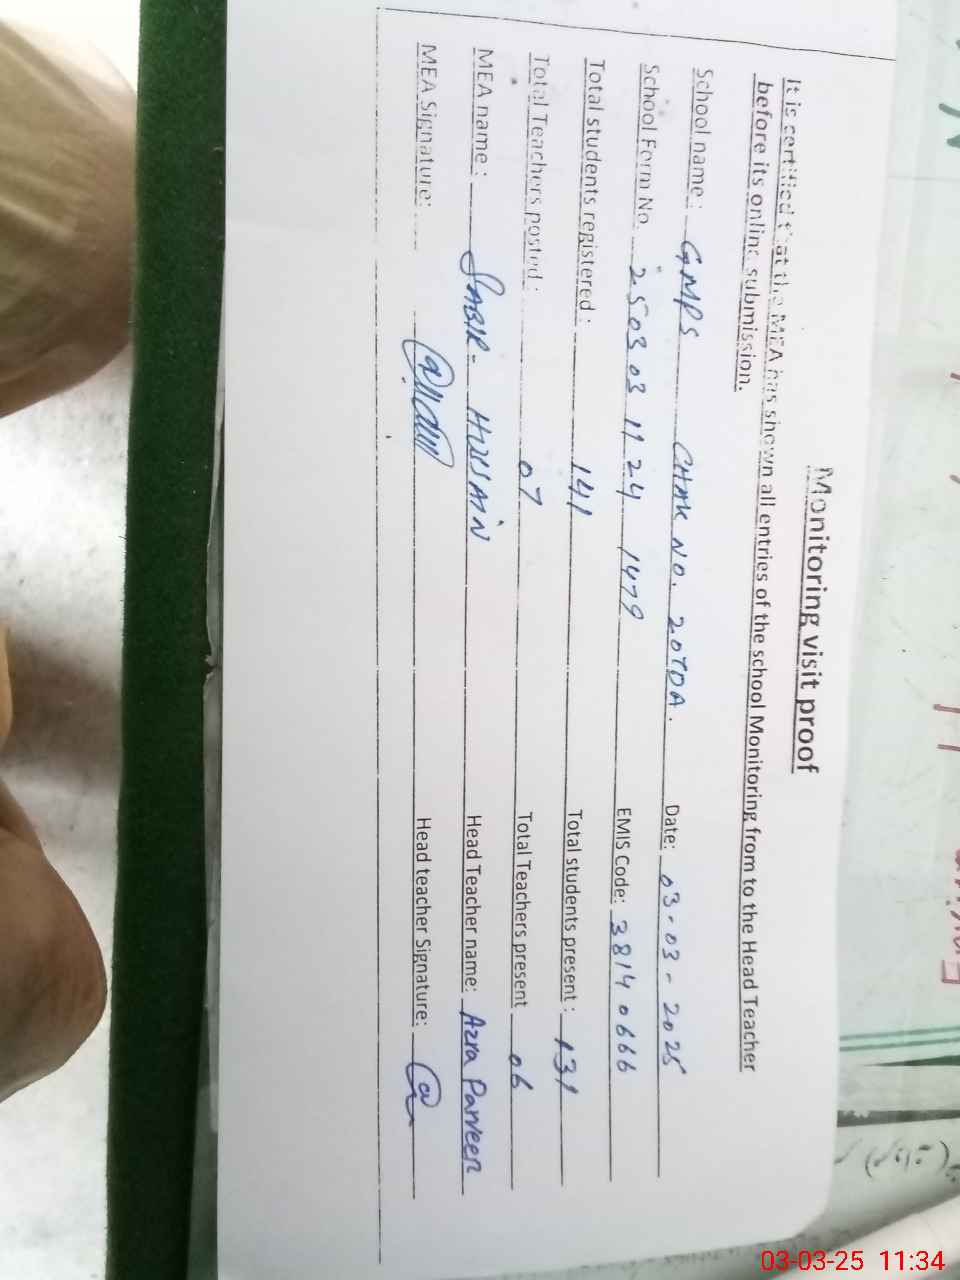 Monitoring visit proof
It is certified that the MEA has shown all entries of the school Monitoring from to the Head Teacher
before its online submission.
School name: GMPS CHAK NO. 20TDA. Date: 03-03-2025
School Form No. 2503 03 11 24 1479 EMIS Code: 3814 0666
Total students registered: 141 Total students present: 131
Total Teachers posted: 07 Total Teachers present 06
MEA name: SABIR HUSSAIN Head Teacher name: Azra Parveen
MEA Signature: Head teacher Signature:
03-03-25 11:34